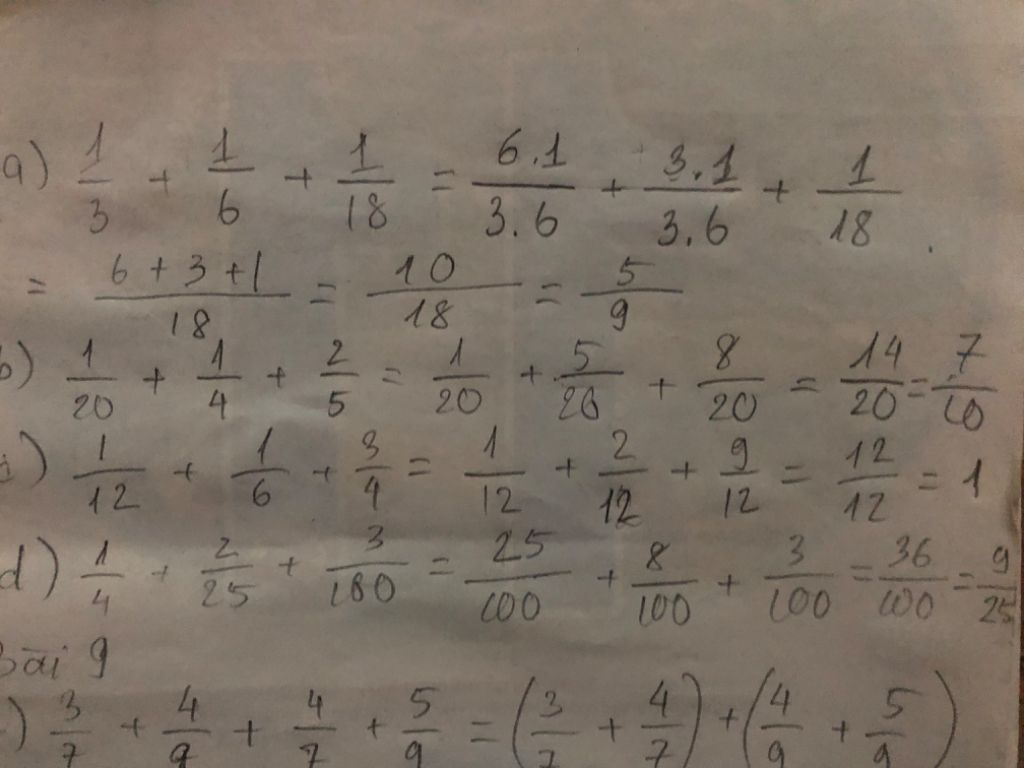 a) 1/3 + 1/6 + 1/18 = 6.1/3.6 + 3.1/3.6 + 1/18
= 6+3+1/18 = 10/18 = 5/9
b) 1/20 + 1/4 + 2/5 = 1/20 + 5/20 + 8/20 = 14/20 = 7/10
) 1/12 + 1/6 + 3/4 = 1/12 + 2/12 + 9/12 = 12/12 = 1
d) 1/4 + 2/25 + 3/100 = 25/100 + 8/100 + 3/100 = 36/100 = 9/25
Bài 9
) 3/7 + 4/9 + 4/7 + 5/9 = (3/7 + 4/7) + (4/9 + 5/9)